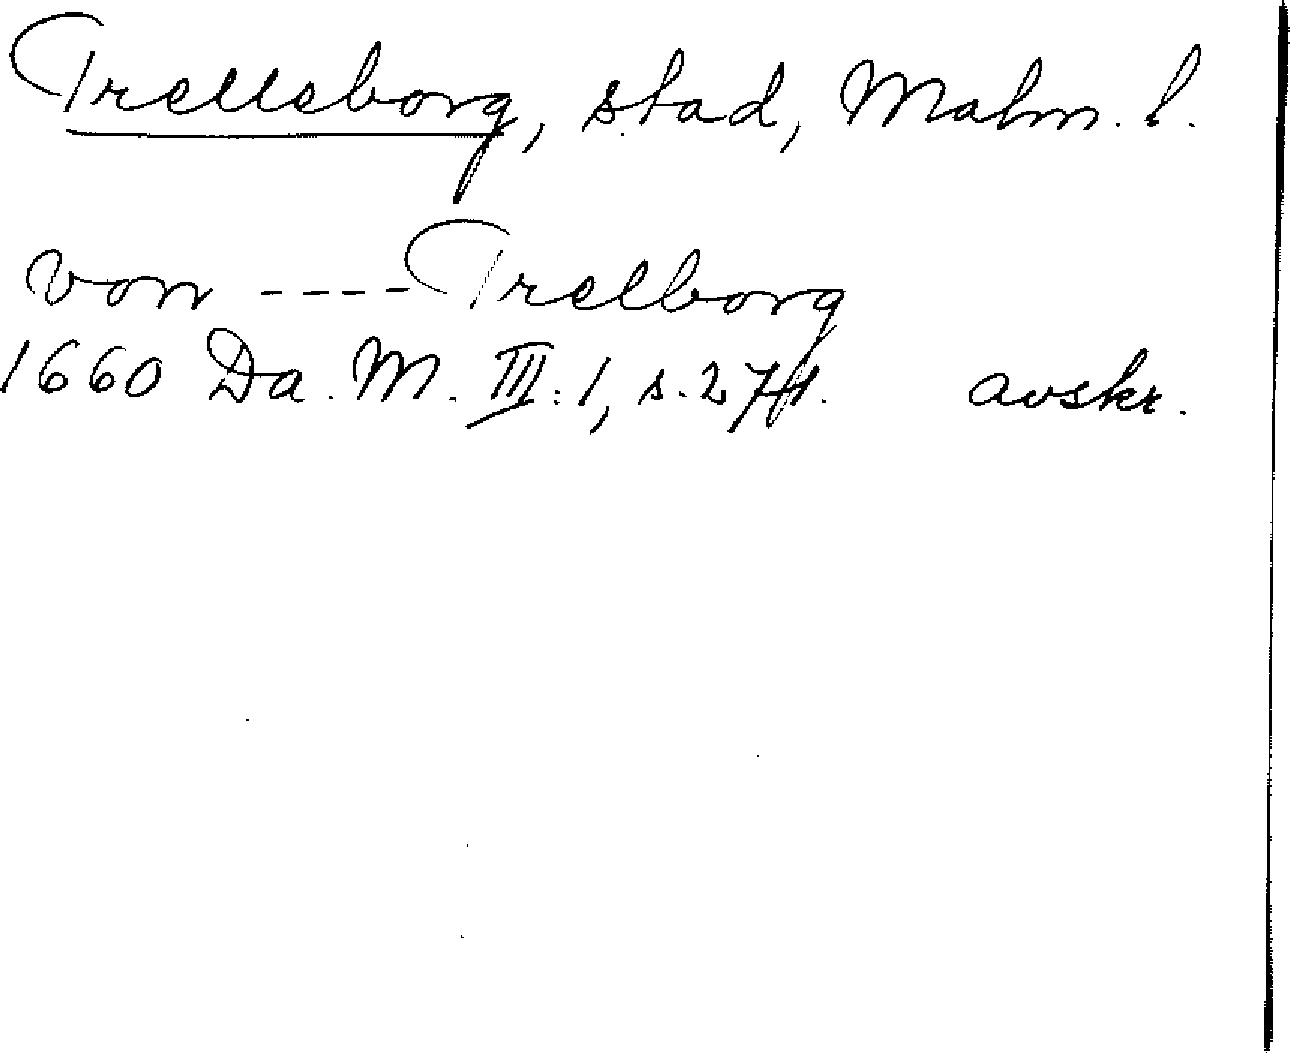 Trelleborg, stad, Malm. l.
von ---- Trelborg
1660 Da. M. III:1, s. 271. avskr.